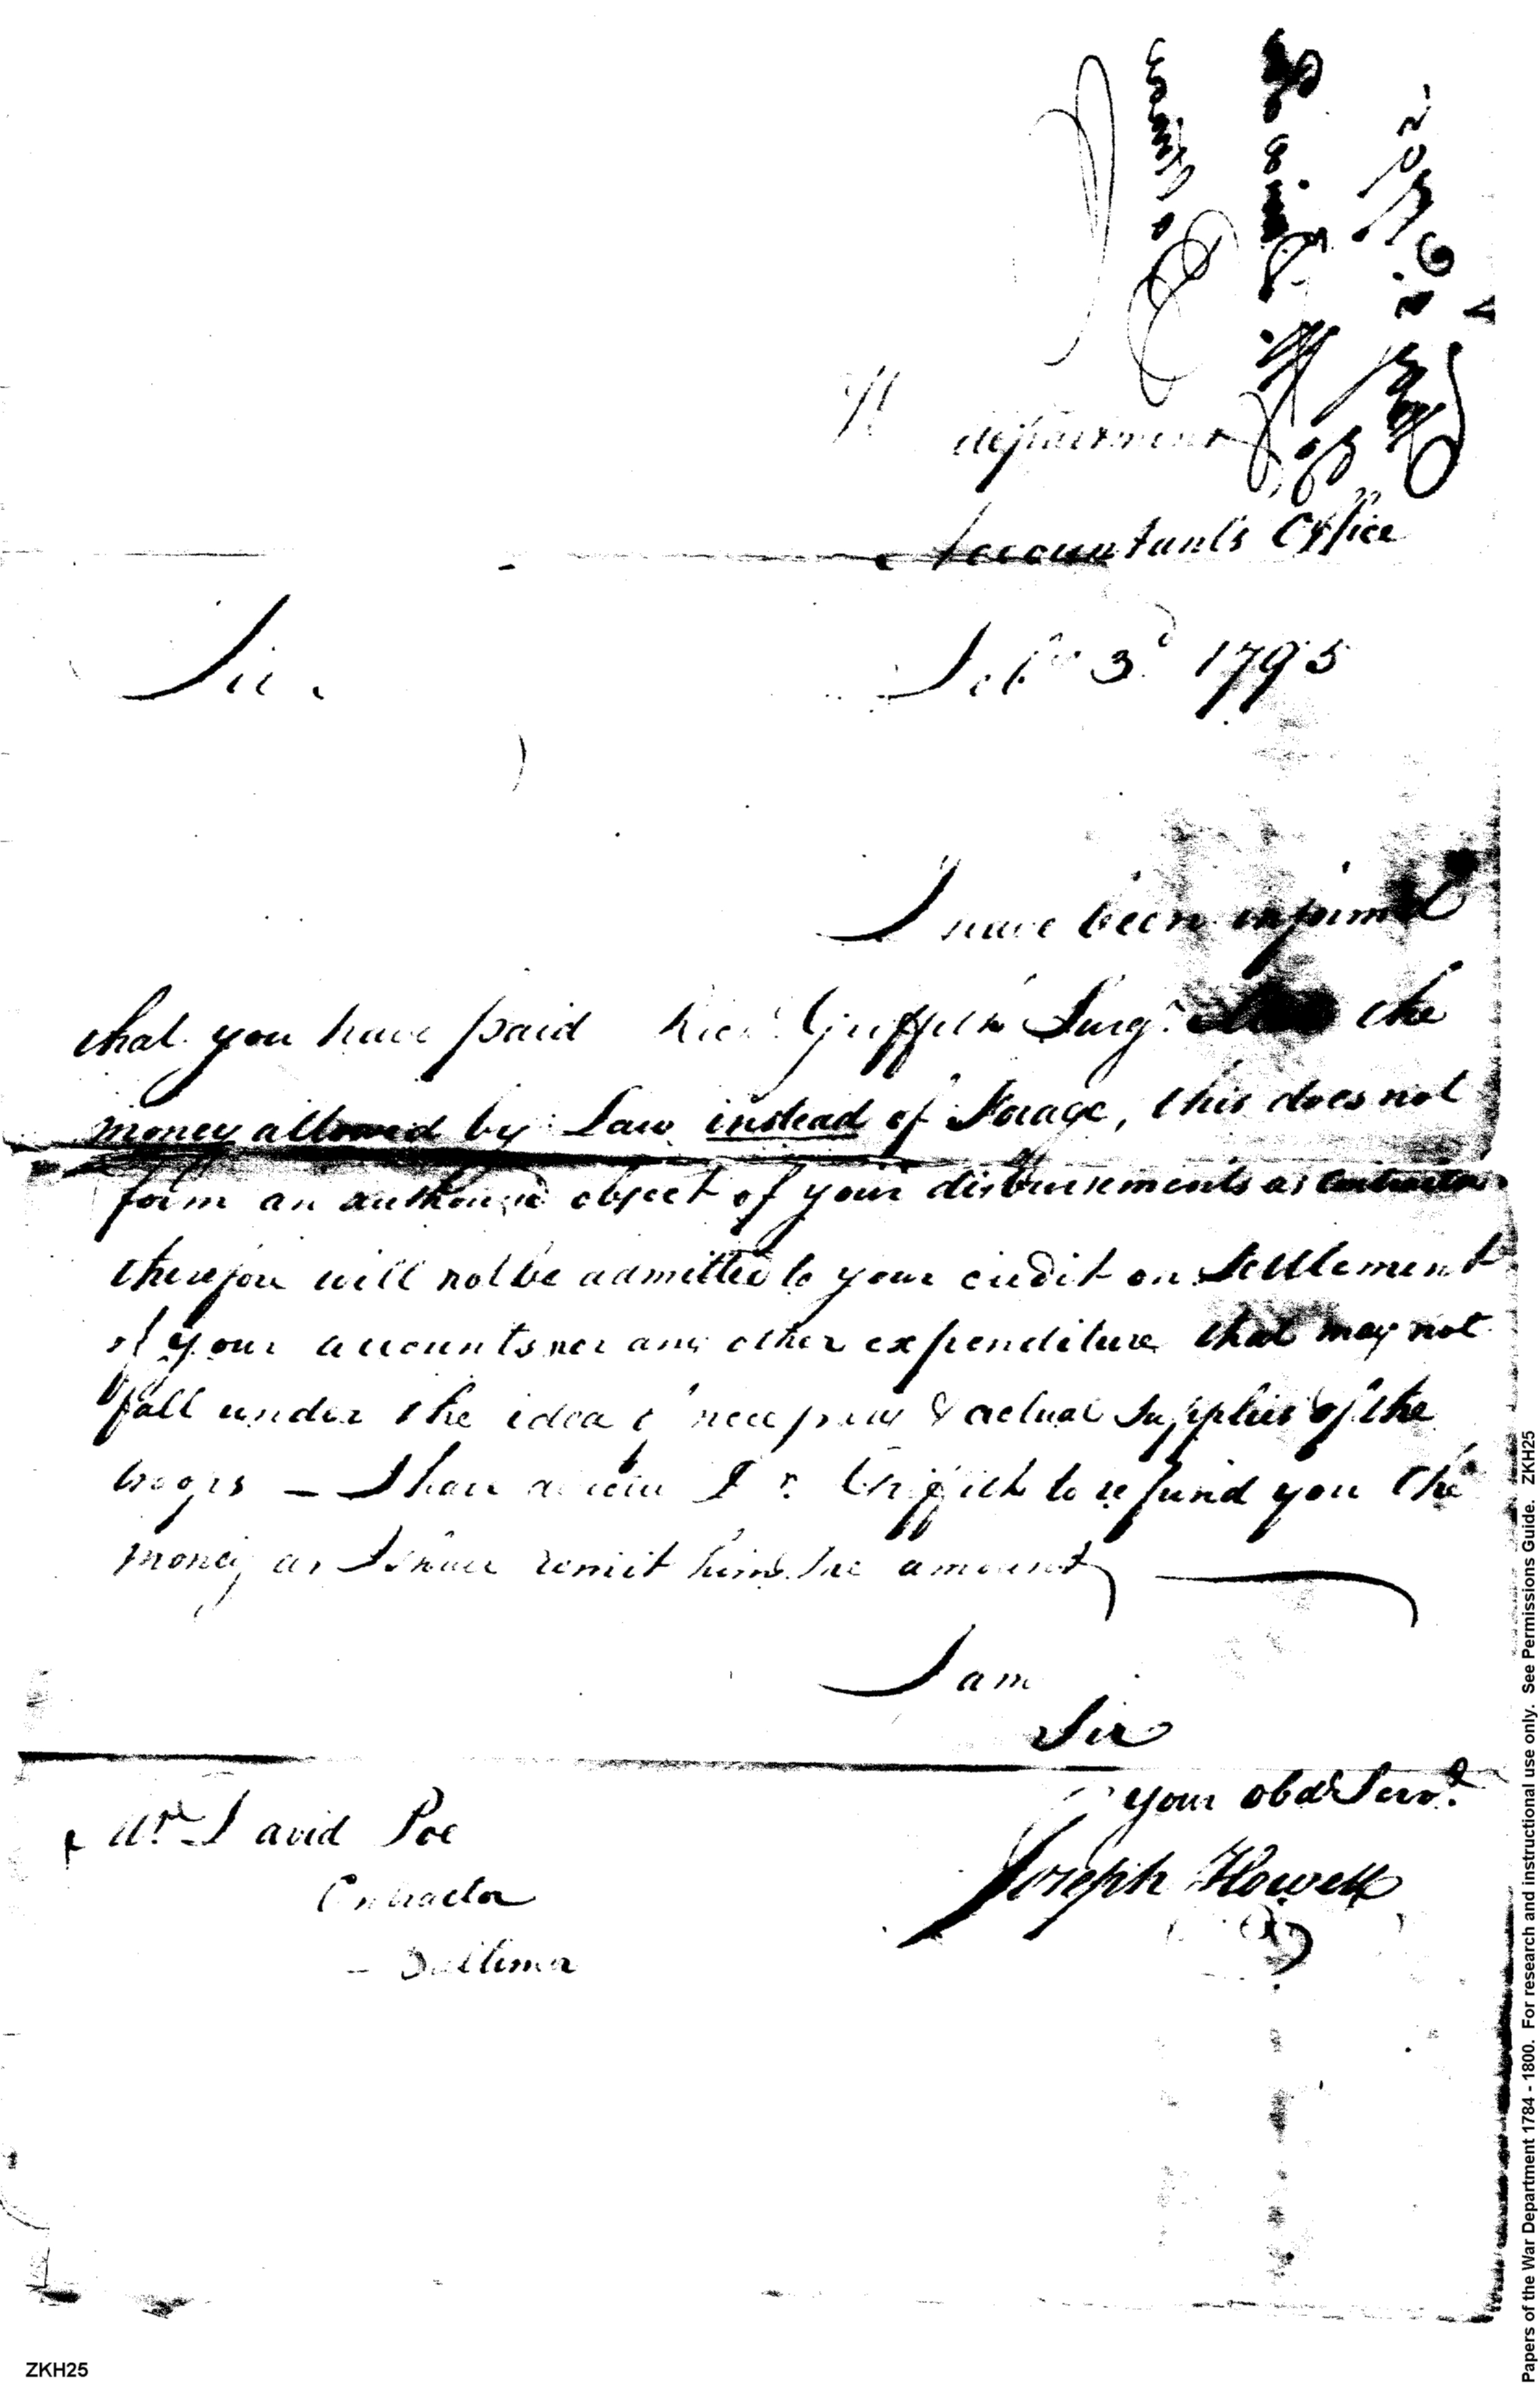 department
Accountant's Office
Sir.
Feb.ʸ 3.ᵈ 1795
I have been informed
that you have paid Rich.ᵈ Griffith Surg.ⁿ the
money allowed by Law instead of Forage, this does not
form an authorized object of your disbursements as Contractor
therefore will not be admitted to your credit on Settlement
of your accounts nor any other expenditure that may not
fall under the idea of necessary & actual Supplies of the
troops — I have Dr. Griffith to refund you the
money as I shall remit him the amount
I am
Sir
your obd.ᵗ Serv.ᵗ
Joseph Howell
Mr. David Poe
Contractor
— Baltimor
ZKH25
Papers of the War Department 1784 - 1800. For research and instructional use only. See Permissions Guide. ZKH25